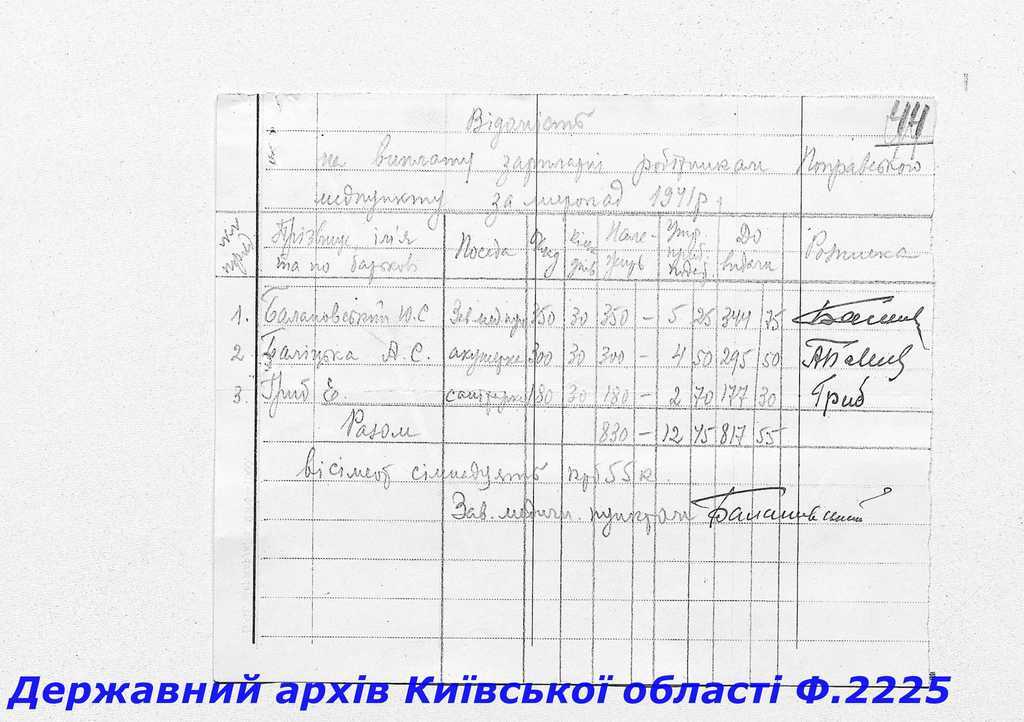 44
Відомість
на виплату зарплатні робітникам Поправського
медпункту за листопад 1941 р.
Прізвище, ім'я та по батькові Посада Оклад Кільк. днів Належить До видачи Розписка
1. Балановський Ю.С Зав медпун 350 30 350 — 5 25 344 75
2 Баліцька А. С. акушерка 300 30 300 — 4 50 295 50
3. Гриб Е. санітарка 180 30 180 — 2 70 177 30 Гриб
Разом 830 — 12 45 817 55
вісімсот сімнадцять крб 55 к.
Зав. медичн. пунктом Балановський
Державний архів Київської області Ф.2225